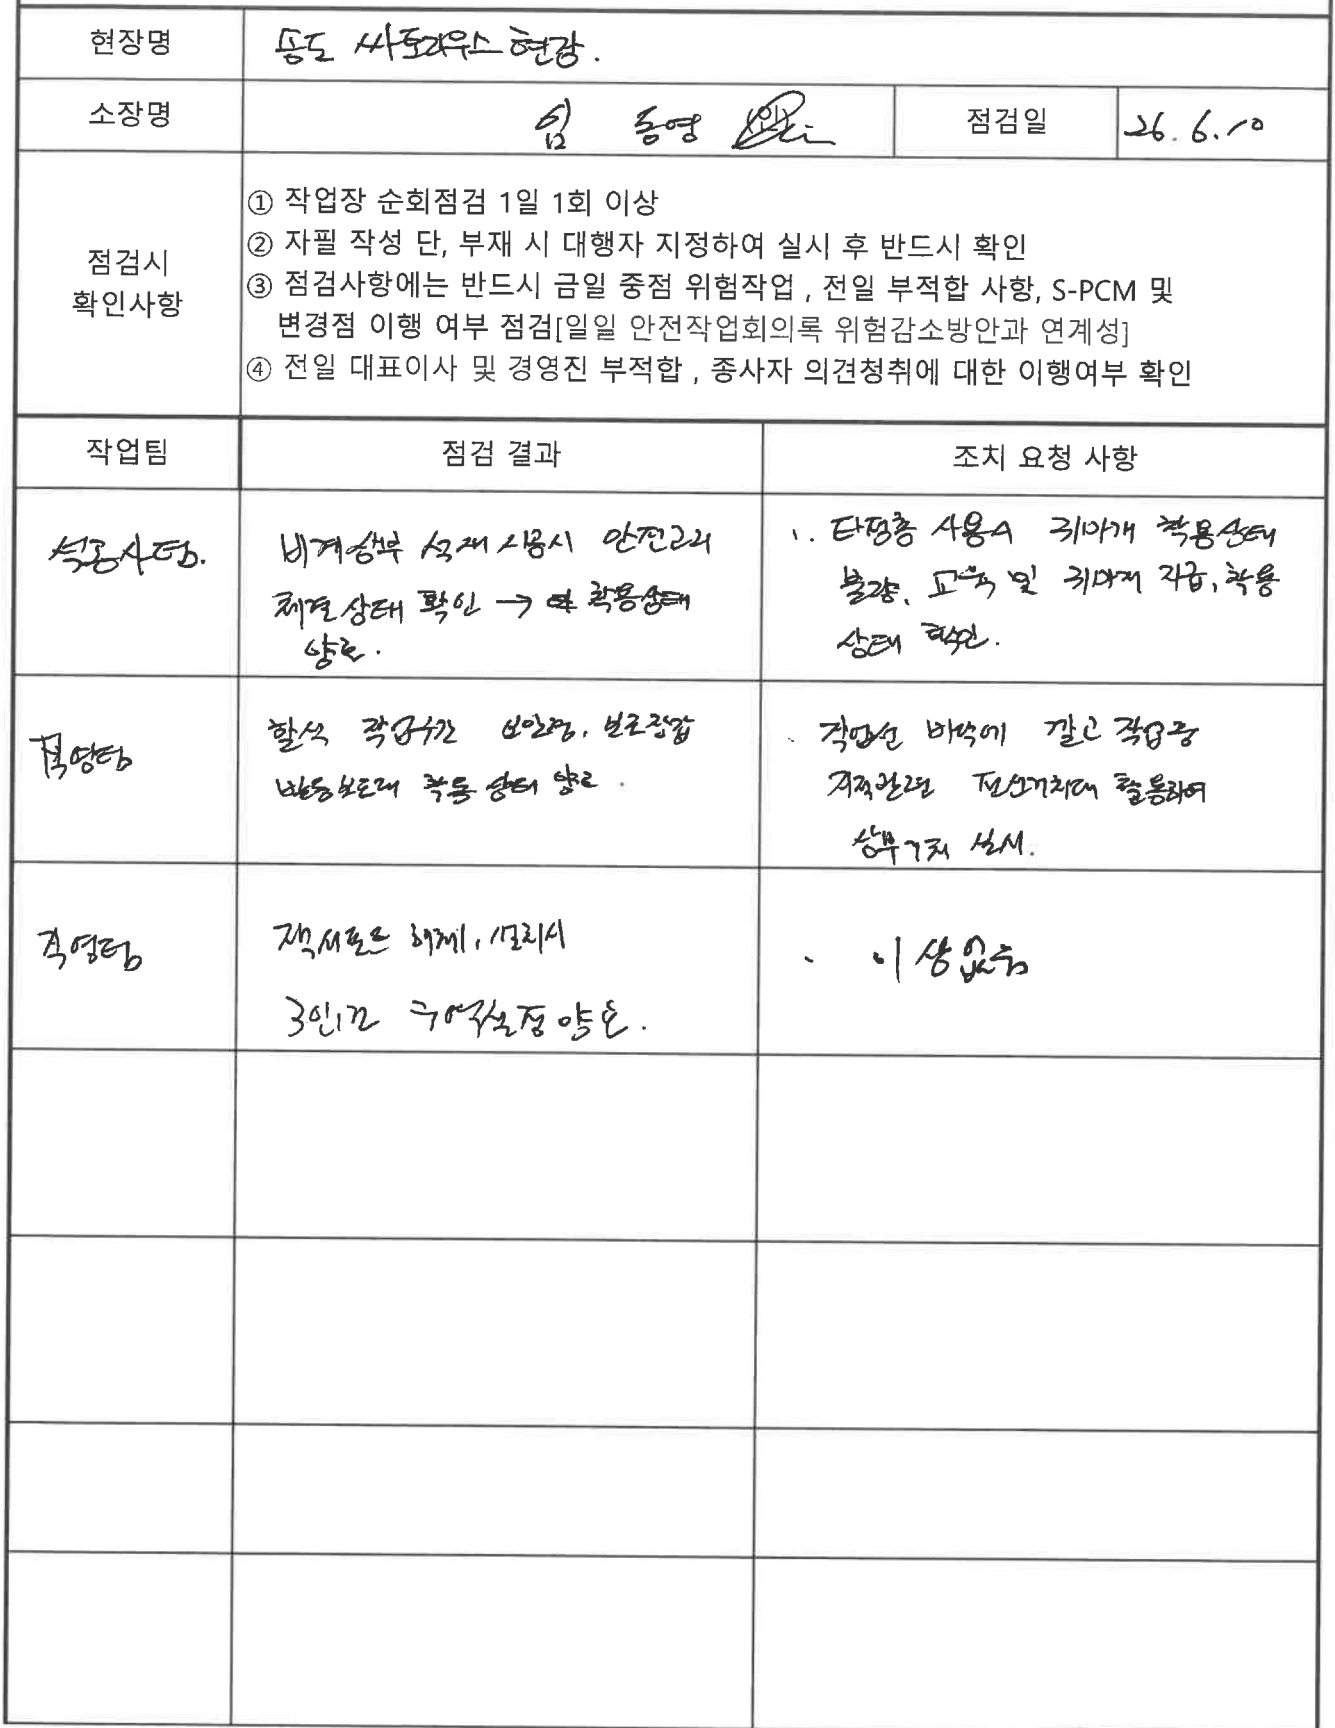 현장명 송도 싸토리우스 현장.
소장명 임 동영 (인) 점검일 26. 6. 10
① 작업장 순회점검 1일 1회 이상
② 자필 작성 단, 부재 시 대행자 지정하여 실시 후 반드시 확인
점검시
확인사항
③ 점검사항에는 반드시 금일 중점 위험작업 , 전일 부적합 사항, S-PCM 및
변경점 이행 여부 점검[일일 안전작업회의록 위험감소방안과 연계성]
④ 전일 대표이사 및 경영진 부적합 , 종사자 의견청취에 대한 이행여부 확인
작업팀 점검 결과 조치 요청 사항
석공사팀.
비계상부 석재 시공시 안전고리
체결상태 확인 → 착용상태
양호.
1. 타정총 사용시 귀마개 착용상태
불량, 교육 및 귀마개 지급, 착용
상태 확인.
직영팀
할석 작업구간 보안경, 보호장갑
착용 상태 양호.
작업선 바닥에 깔고 작업중
지적관련 전선거치대 활용하여
상부거치 실시.
직영팀
잭서포트 해체, 설치시
3인1조 구역설정 양호.
· 이상없음